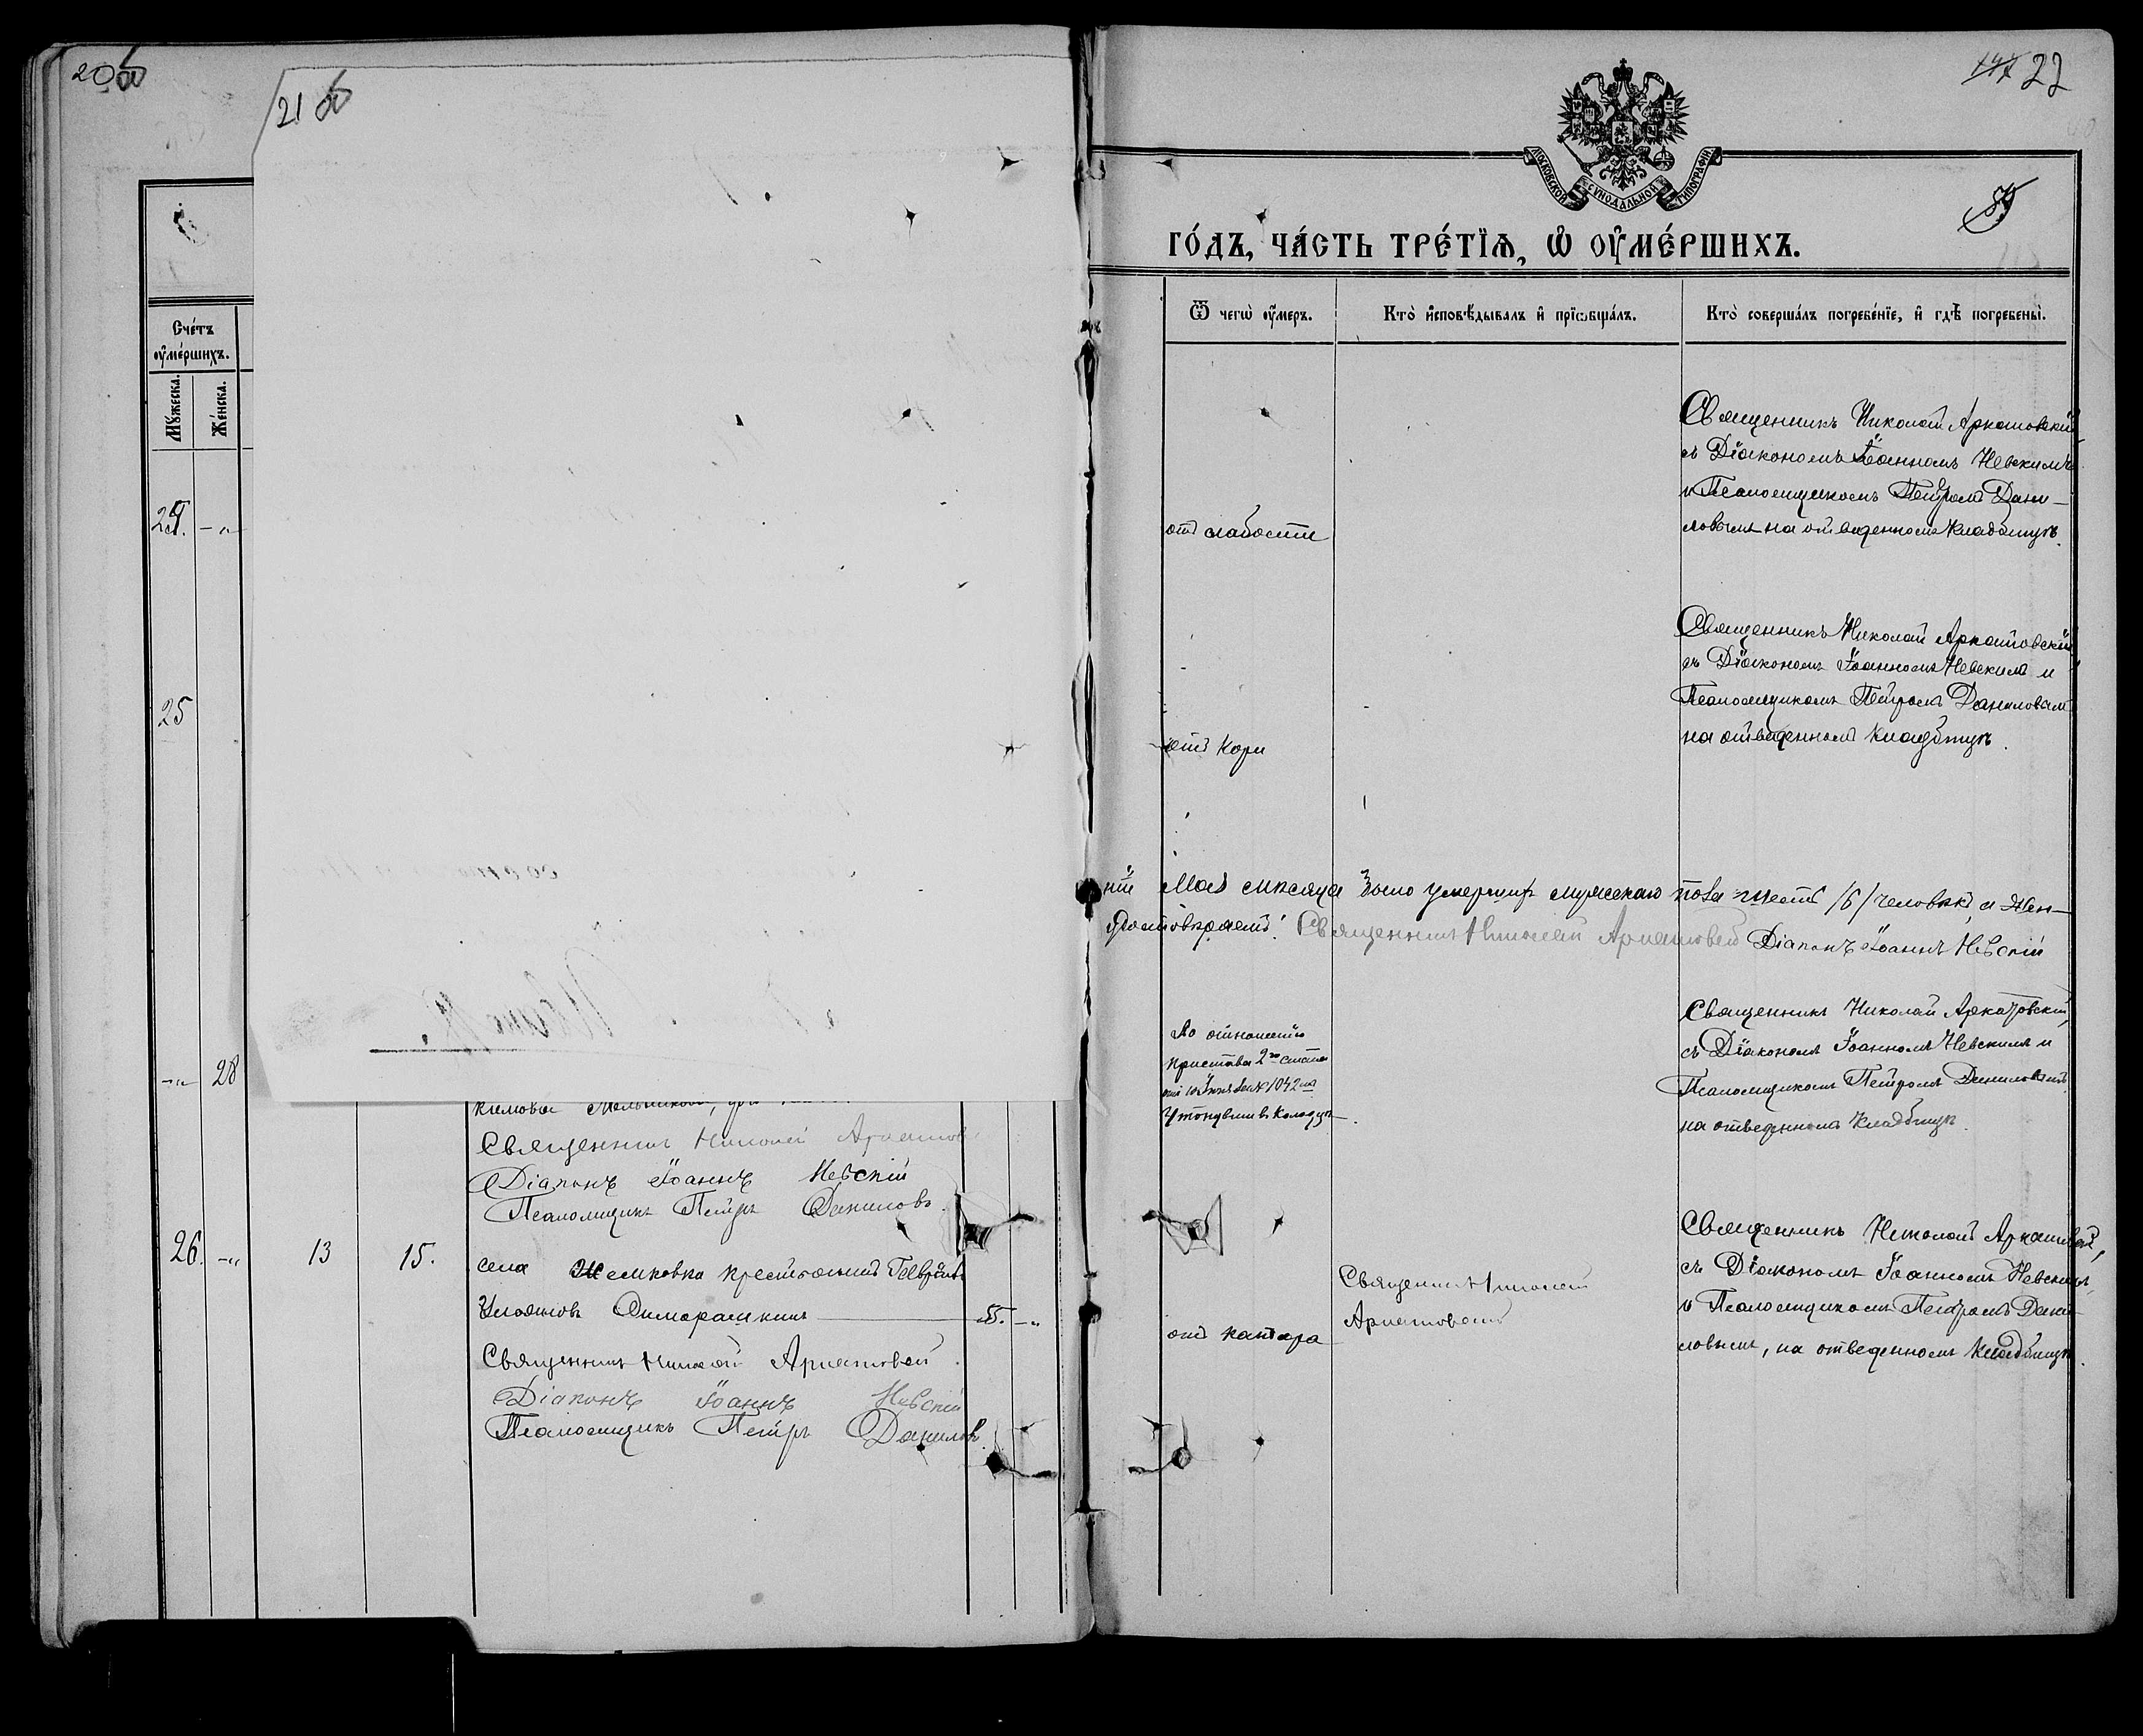 20 об
21 об
22
МОСКОВСКОЙ СѴНОДАЛЬНОЙ ТИПОГРАФІИ.
Счéтъ
оумéршихъ.
Мꙋ́жеска.
Жéнска.
24. – „
25
– „ 28
Священникъ Николай
Діаконъ Іоаннъ Невскій
Псаломщикъ Петръ Даниловъ.
26. – „ 13 15. села крестьянинъ
55. – „
Священникъ Николай Аркатовскій
Діаконъ Іоаннъ Невскій
Псаломщикъ Петръ Даниловъ.
ГО́ДЪ, ЧА́СТЬ ТРЕ́ТЇѦ, Ѡ҆ ОУ҆МЕ́РШИХЪ.
Ѿ чегѡ̀ оу҆́меръ.
Кто̀ и҆сповѣ́дывалъ и҆ прїѡбща́лъ.
Кто̀ соверша́лъ погребе́нїе, и҆ гдѣ̀ погребены̀.
отъ слабости
Священникъ Николай Аркатовскій
съ Діакономъ Іоанномъ Невскимъ
и Псаломщикомъ Петромъ Дани-
ловымъ на отведенномъ кладбищѣ.
отъ кори
Священникъ Николай Аркатовскій
съ Діакономъ Іоанномъ Невскимъ и
Псаломщикомъ Петромъ Даниловым
на отведенномъ кладбищѣ.
Маѣ мѣсяцѣ было умершихъ мужескаго пола шесть /6/ человѣкъ, а жен-
Священникъ Николай Аркатовскій Діаконъ Іоаннъ Невскій
По отношенію
пристава 2го стана
отъ 10 Іюня за № 1042мъ
утонувши въ колодцѣ.
Священникъ Николай Аркатовскій,
съ Діакономъ Іоанномъ Невскимъ и
Псаломщикомъ Петромъ Даниловымъ
на отведенномъ кладбищѣ.
отъ катара
Священникъ Николай
Аркатовскій
Священникъ Николай Аркатовскій,
съ Діакономъ Іоанномъ Невскимъ,
и Псаломщикомъ Петромъ Дани-
ловымъ, на отведенномъ кладбищѣ.